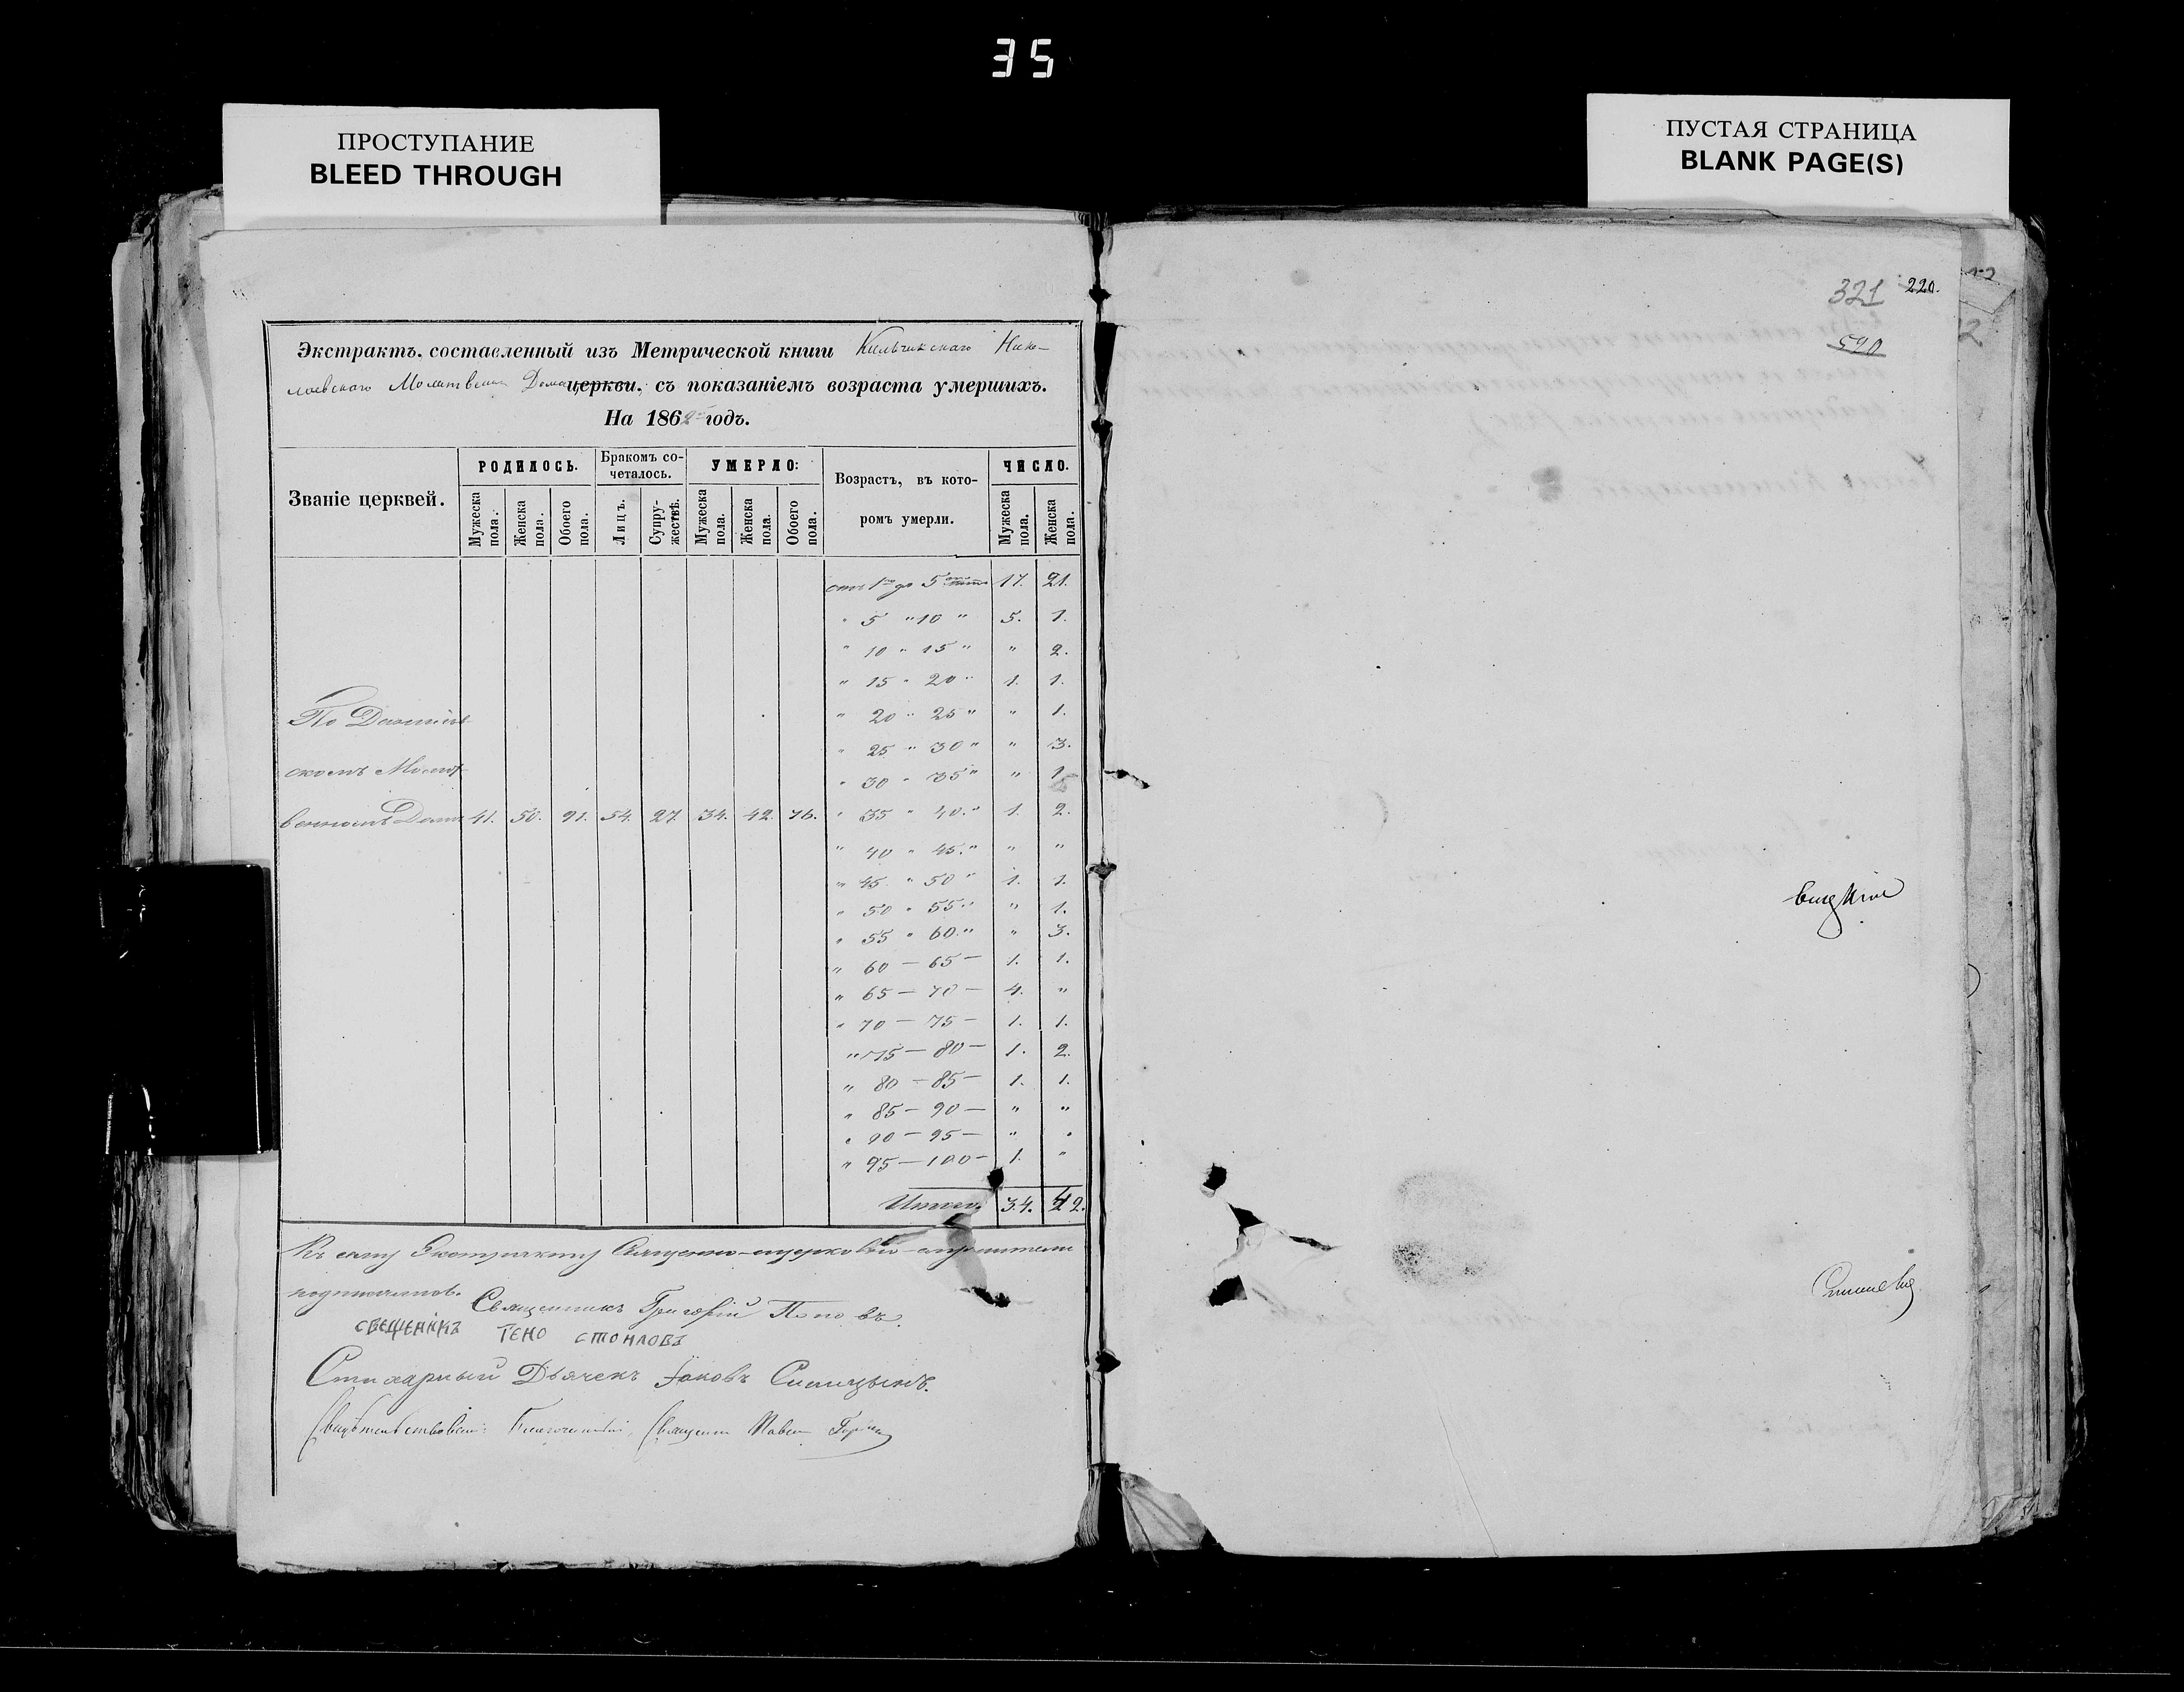 35
ПРОСТУПАНИЕ
BLEED THROUGH
ПУСТАЯ СТРАНИЦА
BLANK PAGE(S)
321 220.
590
Экстрактъ, составленный изъ Метрической книги Нико-
лаевскаго Молитвенна Дома церкви, съ показаніемъ возраста умершихъ.
На 1862 годъ.
Званіе церквей.
РОДИЛОСЬ.
Бракомъ со-
четалось.
УМЕРЛО:
Возрастъ, въ кото-
ромъ умерли.
ЧИСЛО.
Мужеска пола.
Женска пола.
Обоего пола.
Лицъ.
Супру-
жествъ.
Мужеска пола.
Женска пола.
Обоего пола.
Мужеска пола.
Женска пола.
отъ 1 до 5 17. 21.
" 5 " 10 " 5. 1.
" 10 " 15 " " 2.
" 15 " 20 " 1. 1.
" 20 " 25 " " 1.
" 25 " 30 " " 3.
" 30 " 35 " " 1
По
скомъ Молит-
венномъ Домѣ 41. 50. 91. 54. 27. 34. 42. 76. " 35 " 40. " 1. 2.
" 40 " 45. " " "
" 45. " 50 " 1. 1.
" 50 " 55 " " 1.
" 55 " 60. " " 3.
" 60 — 65 — 1. 1.
" 65 — 70 — 4. "
" 70 — 75 — 1. 1.
" 75 — 80 — 1. 2.
" 80 — 85 — 1. 1.
" 85 — 90 — " "
" 90 — 95 — " "
" 95 — 100 — 1. "
Итого. 34. 42.
Къ сему Экстракту Священно-церковно-служители
подписались. Священникъ Григорій Поповъ.
СВЕЩЕНИКЪ ГЕНО СТОИЛОВЪ
Стихарный Дьячекъ Іаковъ Синицынъ.
Свидѣтельствовалъ: Благочинный, Священн Павел